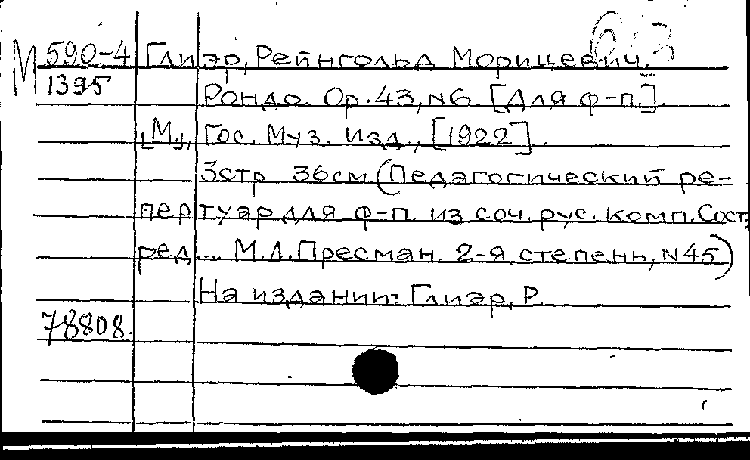 М 590-4 Глиэр, Рейнгольд Морицевич.
1395
Рондо. Ор. 43, N6. [Для ф-п.].
[М.], Гос. Муз. Изд., [1922].
3стр 36см (Педагогический ре-
пертуар для ф-п. из соч. рус. комп. Сост.
ред... М.Л. Пресман. 2-я степень, N45)
На издании: Глиэр, Р.
78808.